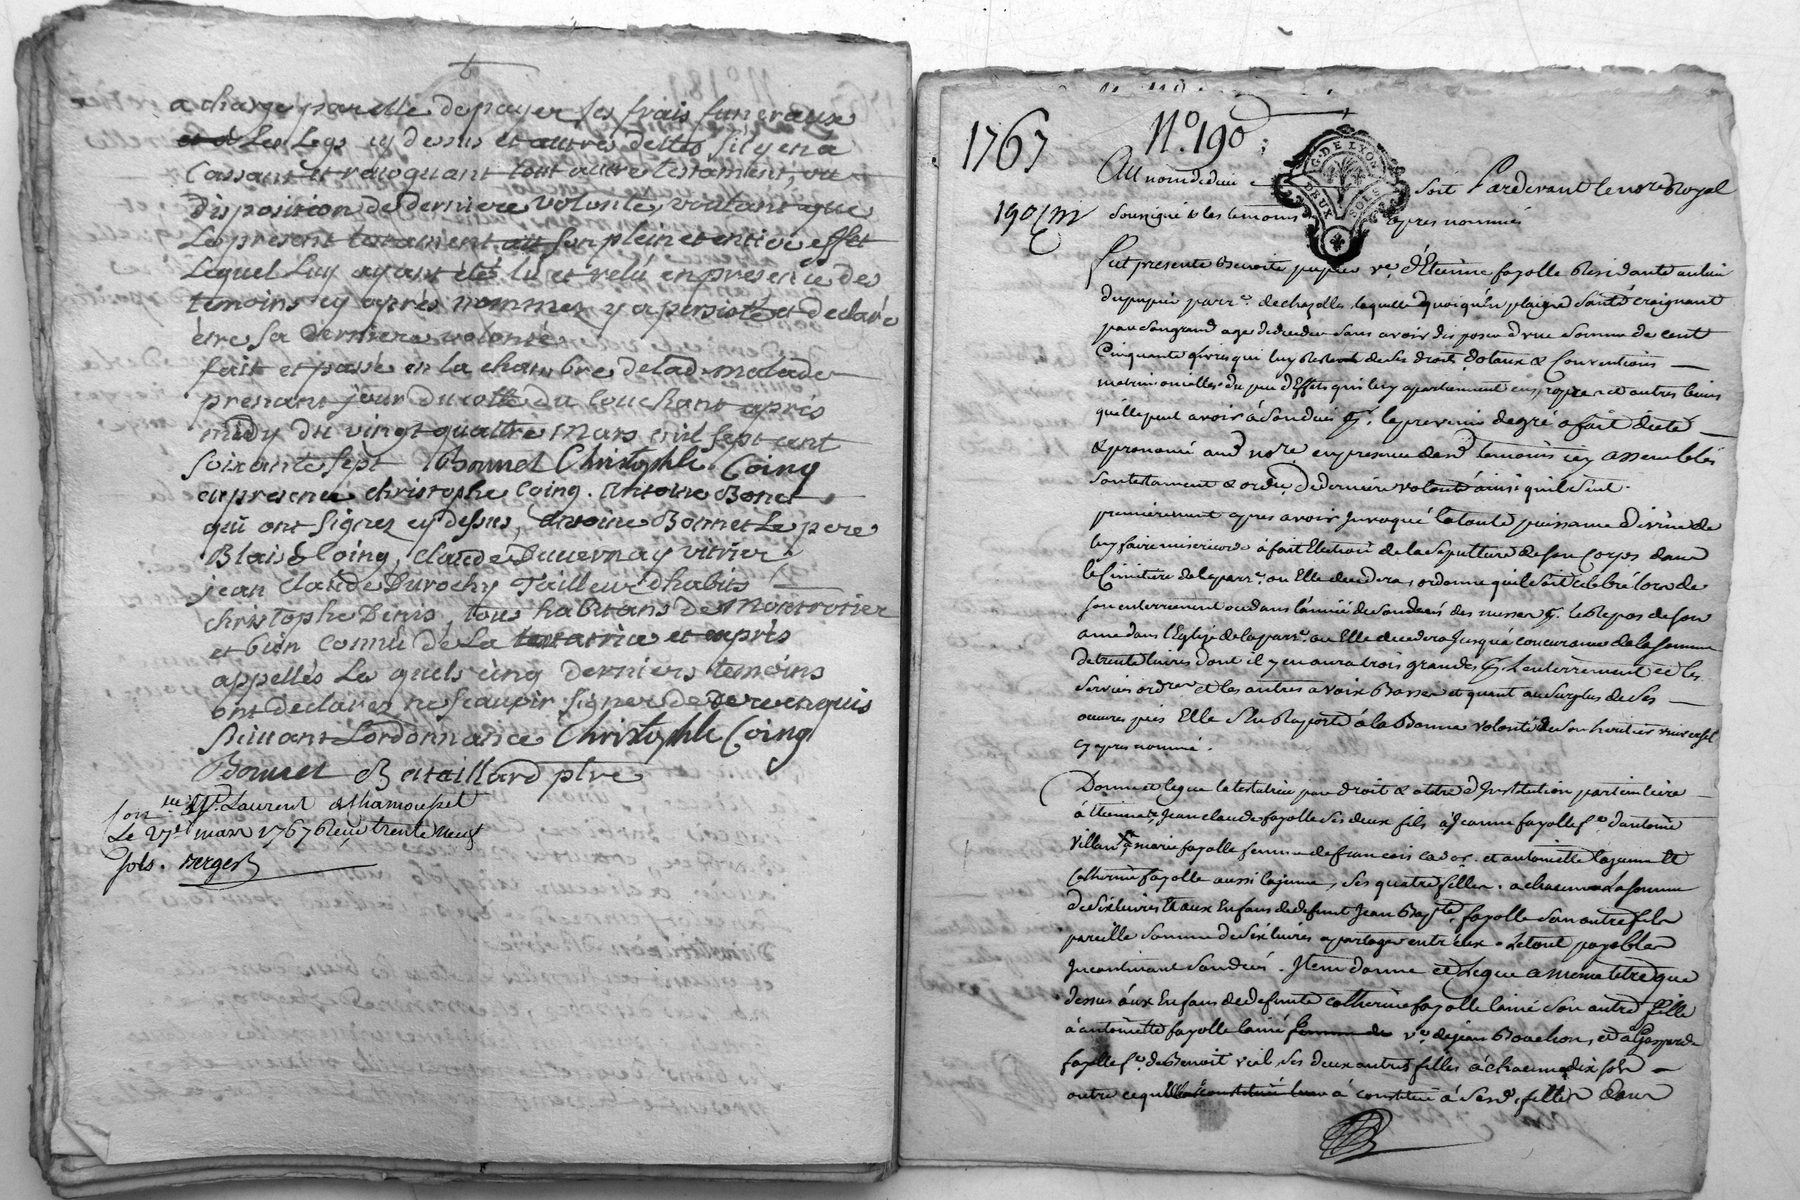 a charge par elle de payer ses frais funeraux
et d Les Legs cy dessus et autres dettes s'il y en a
Cassant et revoquant tout autre testament, ou
disposition de derniere volonté, voulant que
Le present testament ait son plein et entier effet
Lequel Luy ayant été lu et relu en presence des
temoins cy aprés nommes y a persisté et declaré
être sa derniere volonté
fait et passé en la chambre de lad. malade
prenant jour du cotté du couchant aprés
midy du vingt quattre mars mil sept cent
soixante sept Bonnet Christophle Coing
en presence christophe Coing. Antoine Bonet
qui ont signez cy dessus, Antoine Bonnet Le pere
Blaise Coing, claude Duvernay vitrier
jean Claude Durochy Tailleur d'habits
christophe Denis, tous habitans de Montrotier
et bien connu de La testatrice et aprés
appellés Le quels cinq derniers temoins
ont declarés ne scavoir signer de ce requis
suivant L'ordonnance Christophle Coing
Bonnet Bataillard ptre
Con. lle St. Laurent de Chamousset
Le 27e mars 1767 Reçu trente neuf
sols. Berger
1767 No. 190
G. DE LYON
DEUX SOLS
Au nom de dieu soit Pardevant le notre Royal
190
Soussigné & les temoins apres nommés
fut presente Benoite pupier ve. d'Etienne fayolle Residante au lieu
du pupier parr.e de chazelle, laquelle quoiqu'en pleine santé craignant
par son grand age de deceder sans avoir disposé d'une somme de cent
Cinquante livres qui luy Restent de ses droits dotaux & Conventions
matrimonialles du peu d'Effets qui luy apartiennent en propre et autres biens
qu'elle peut avoir à son deces pr. le prevenir de gré a fait dicté
& prononcé aud notre en presence desd temoins icy assemblés
son testament & ordce. de derniere volonté ainsi qu'il suit.
premierement apres avoir Invoqué la toute puissance divine de
luy faire misericorde à fait Election de la sepulture de son Corps dans
le Cimitiere de la parr.e ou Elle decedera, ordonne qu'il soit celebré lors de
son enterrement ou dans l'année de son decés des messes pr. le Repos de son
ame dans l'Eglise de la parr.e ou Elle decedera Jusqu'à concurance de la somme
de trente livres dont il y en aura trois grandes pr. L'enterrement et les
services ordres et les autres a voix Basse et quant au surplus de ses
œuvres pies Elle s'en Raporte à la Bonne volonté de son heritier universel
cy apres nommé.
Donne et legue la testatrice par droit & titre d'Institution particuliere
à Etienne & Jean claude fayolle ses deux fils à Jeanne fayolle fe. d'antoine
villard à marie fayolle femme de francois et antoinette la jeune Et
Catherine fayolle aussi la jeune, ses quatre filles. a chacune la somme
de six livres Et aux Enfans de defunt Jean Bapte. fayolle son autre fils
pareille somme de six livres a partager entr'eux. Le tout payable
Incontinant son decés. Item donne et Legue a meme titre que
dessus aux Enfans de defunte catherine fayolle l'ainé son autre fille
à antoinette fayolle l'ainé femme de ve. de jean Bouchon, et à
fayolle fe. de Benoit viel ses deux autres filles à chacune dix sols
outre ce qu'elle à constitué à sesd. filles dans